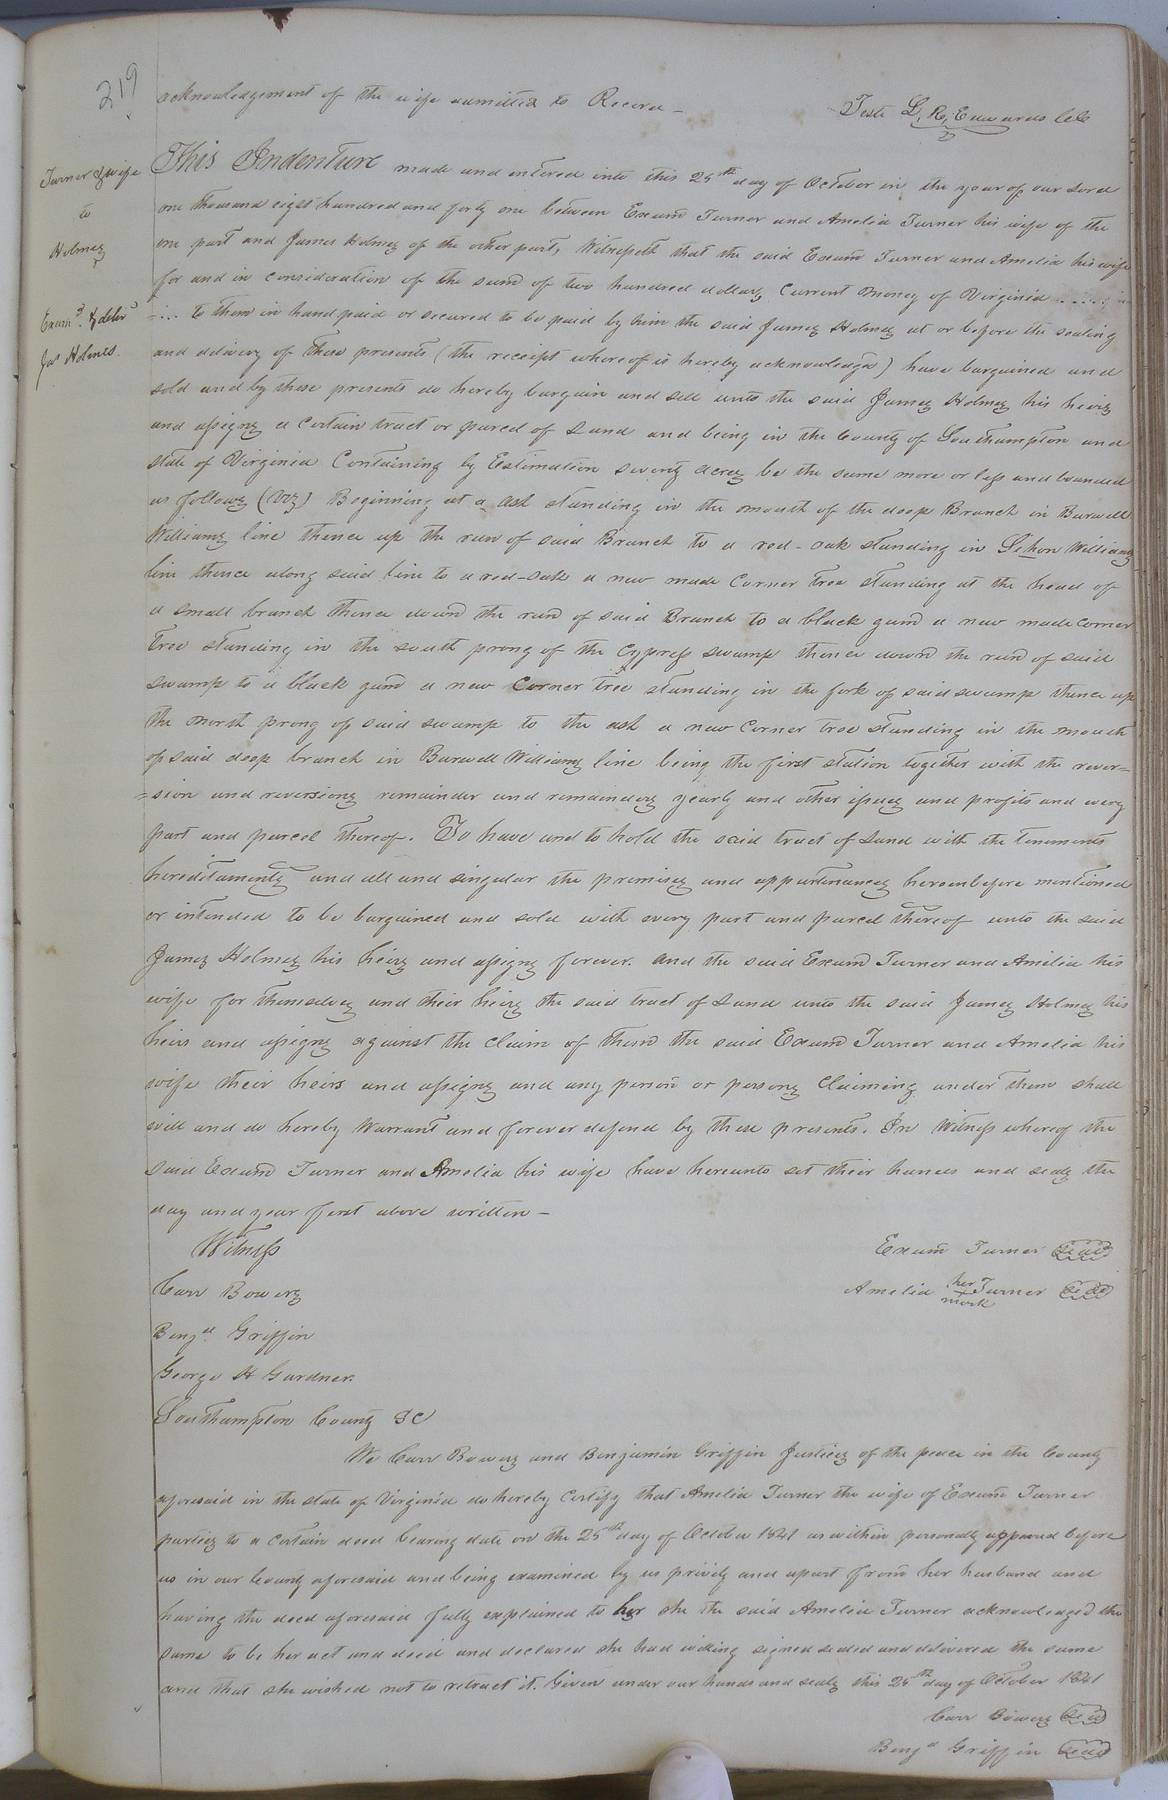 219
acknowledgement of the wife admitted to Record –
Teste L. R. Edwards CC
Turner & wife
to
Holmes
Exam.d & deliv.d
Jas Holmes.
This Indenture made and entered into this 25th day of October in the year of our Lord
one thousand eight hundred and forty one between Exum Turner and Amelia Turner his wife of the
one part and James Holmes of the other part, Witnesseth that the said Exum Turner and Amelia his wife
for and in consideration of the sum of two hundred dollars Current money of Virginia
to them in hand paid or secured to be paid by him the said James Holmes at or before the sealing
and delivery of these presents (the receipt whereof is hereby acknowledged) have bargained and
sold and by these presents do hereby bargain and sell unto the said James Holmes his heirs
and assigns a certain tract or parcel of Land and being in the County of Southampton and
state of Virginia Containing by Estimation seventy acres be the same more or less and bounded
as follows (Viz) Beginning at a ash standing in the mouth of the deep Branch in Burwell
Williams line thence up the run of said Branch to a red-oak standing in Sihon Williams
line thence along said line to a red-oak a new made Corner tree standing at the head of
a small branch thence down the run of said Branch to a black gum a new made corner
tree standing in the south prong of the Cypress swamp thence down the run of said
swamp to a black gum a new Corner tree standing in the fork of said swamp thence up
the north prong of said swamp to the ash a new Corner tree standing in the mouth
of said deep branch in Burwell Williams line being the first station together with the rever=
=sion and reversions remainder and remainders yearly and other issues and profits and every
part and parcel thereof. To have and to hold the said tract of Land with the tenements
hereditaments and all and singular the premises and appurtenances hereinbefore mentioned
or intended to be bargained and sold with every part and parcel thereof unto the said
James Holmes his heirs and assigns forever. and the said Exum Turner and Amelia his
wife for themselves and their heirs the said tract of Land unto the said James Holmes his
heirs and assigns against the claim of them the said Exum Turner and Amelia his
wife their heirs and assigns and any person or persons Claiming under them shall
will and do hereby Warrant and forever defend by these presents. In Witness whereof the
said Exum Turner and Amelia his wife have hereunto set their hands and seals the
day and year first above written –
Witness
Exum Turner seal
Carr Bowers
Amelia her mark Turner seal
Benj.a Griffin
George H Gardner.
Southampton County SC
We Carr Bowers and Benjamin Griffin Justices of the peace in the County
aforesaid in the state of Virginia do hereby Certify that Amelia Turner the wife of Exum Turner
parties to a certain deed bearing date on the 25th day of October 1841 as within personally appeared before
us in our County aforesaid and being examined by us privily and apart from her husband and
having the deed aforesaid fully explained to her she the said Amelia Turner acknowledged the
same to be her act and deed and declared she had willing signed sealed and delivered the same
and that she wished not to retract it. Given under our hands and seals this 25th day of October 1841
Carr Bowers seal
Benj.a Griffin seal